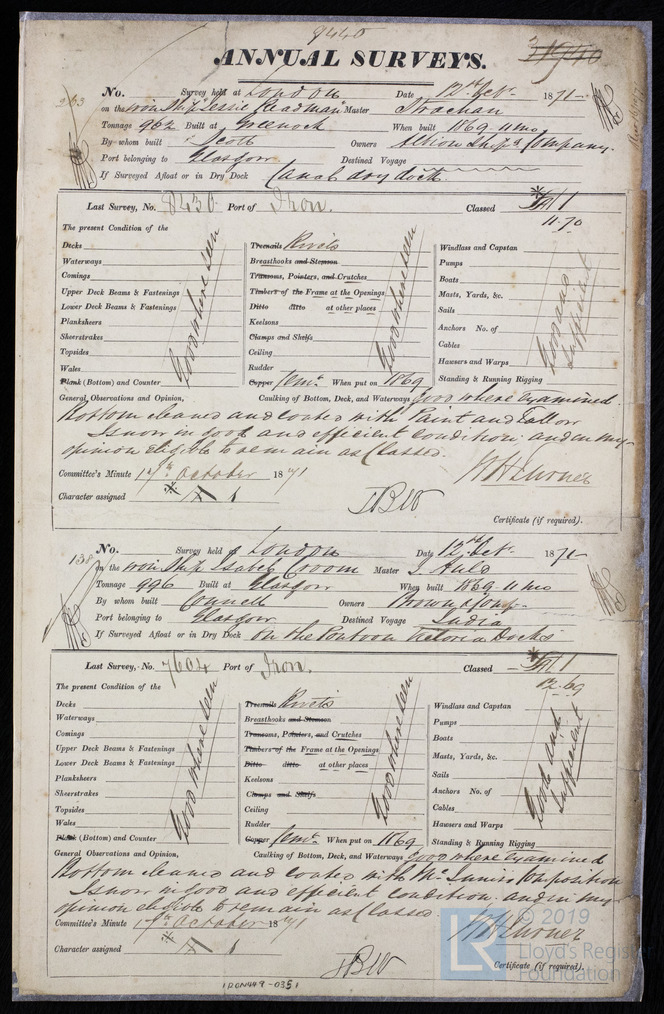 8440
ANNUAL SURVEYS.
No. Survey held at London Date 12th Oct. 1871-
263 on the iron Ship "Jessie Readman" Master Strachan
Tonnage 962 Built at Greenock When built 1869-11mo
By whom built Scott Owners Albion Ship's Company.
Port belonging to Glasgow Destined Voyage
If Surveyed Afloat or in Dry Dock Canal dry dock
Last Survey, No. 8430 Port of Iron. Classed A 1
11-70
The present Condition of the
Decks Treenails Rivets Windlass and Capstan
Waterways Breasthooks and Stemson Pumps
Comings Transoms, Pointers, and Crutches Boats
Upper Deck Beams & Fastenings Timbers of the Frame at the Openings Masts, Yards, &c.
Lower Deck Beams & Fastenings Ditto ditto at other places Sails
Planksheers Keelsons Anchors No. of
Sheerstrakes Clamps and Shelfs Cables
Topsides Ceiling Hawsers and Warps
Wales Rudder Standing & Running Rigging
Plank (Bottom) and Counter Copper Cemt. When put on 1869
Good where seen
Good where seen
Good and sufficient
General Observations and Opinion, Caulking of Bottom, Deck, and Waterways Good where examined.
Bottom cleaned and coated with Paint and Tallow
Is now in good and efficient condition. and in my
opinion eligible to remain as Classed.
Committee's Minute 17th October 1871
Character assigned A 1
Certificate (if required).
No. Survey held at London Date 12th Oct. 1871-
138 on the iron Ship Isabel Croom Master J Auld
Tonnage 996 Built at Glasgow When built 1869-11mo
By whom built Connell Owners Brown & Young
Port belonging to Glasgow Destined Voyage India
If Surveyed Afloat or in Dry Dock On the Pontoon Victoria Docks
Last Survey, No. 7604 Port of Iron. Classed A 1
12-69
The present Condition of the
Decks Treenails Rivets Windlass and Capstan
Waterways Breasthooks and Stemson Pumps
Comings Transoms, Pointers, and Crutches Boats
Upper Deck Beams & Fastenings Timbers of the Frame at the Openings Masts, Yards, &c.
Lower Deck Beams & Fastenings Ditto ditto at other places Sails
Planksheers Keelsons Anchors No. of
Sheerstrakes Clamps and Shelfs Cables
Topsides Ceiling Hawsers and Warps
Wales Rudder Standing & Running Rigging
Plank (Bottom) and Counter Copper Cemt. When put on 1869
Good where seen
Good where seen
Good and sufficient
General Observations and Opinion, Caulking of Bottom, Deck, and Waterways Good where examined
Bottom cleaned and coated with McInnis's Composition
Is now in good and efficient condition. and in my
opinion eligible to remain as Classed.
Committee's Minute 17th October 1871
Character assigned A 1
Certificate (if required).
IRON449-0351
LR © 2019
Lloyd's Register
Foundation